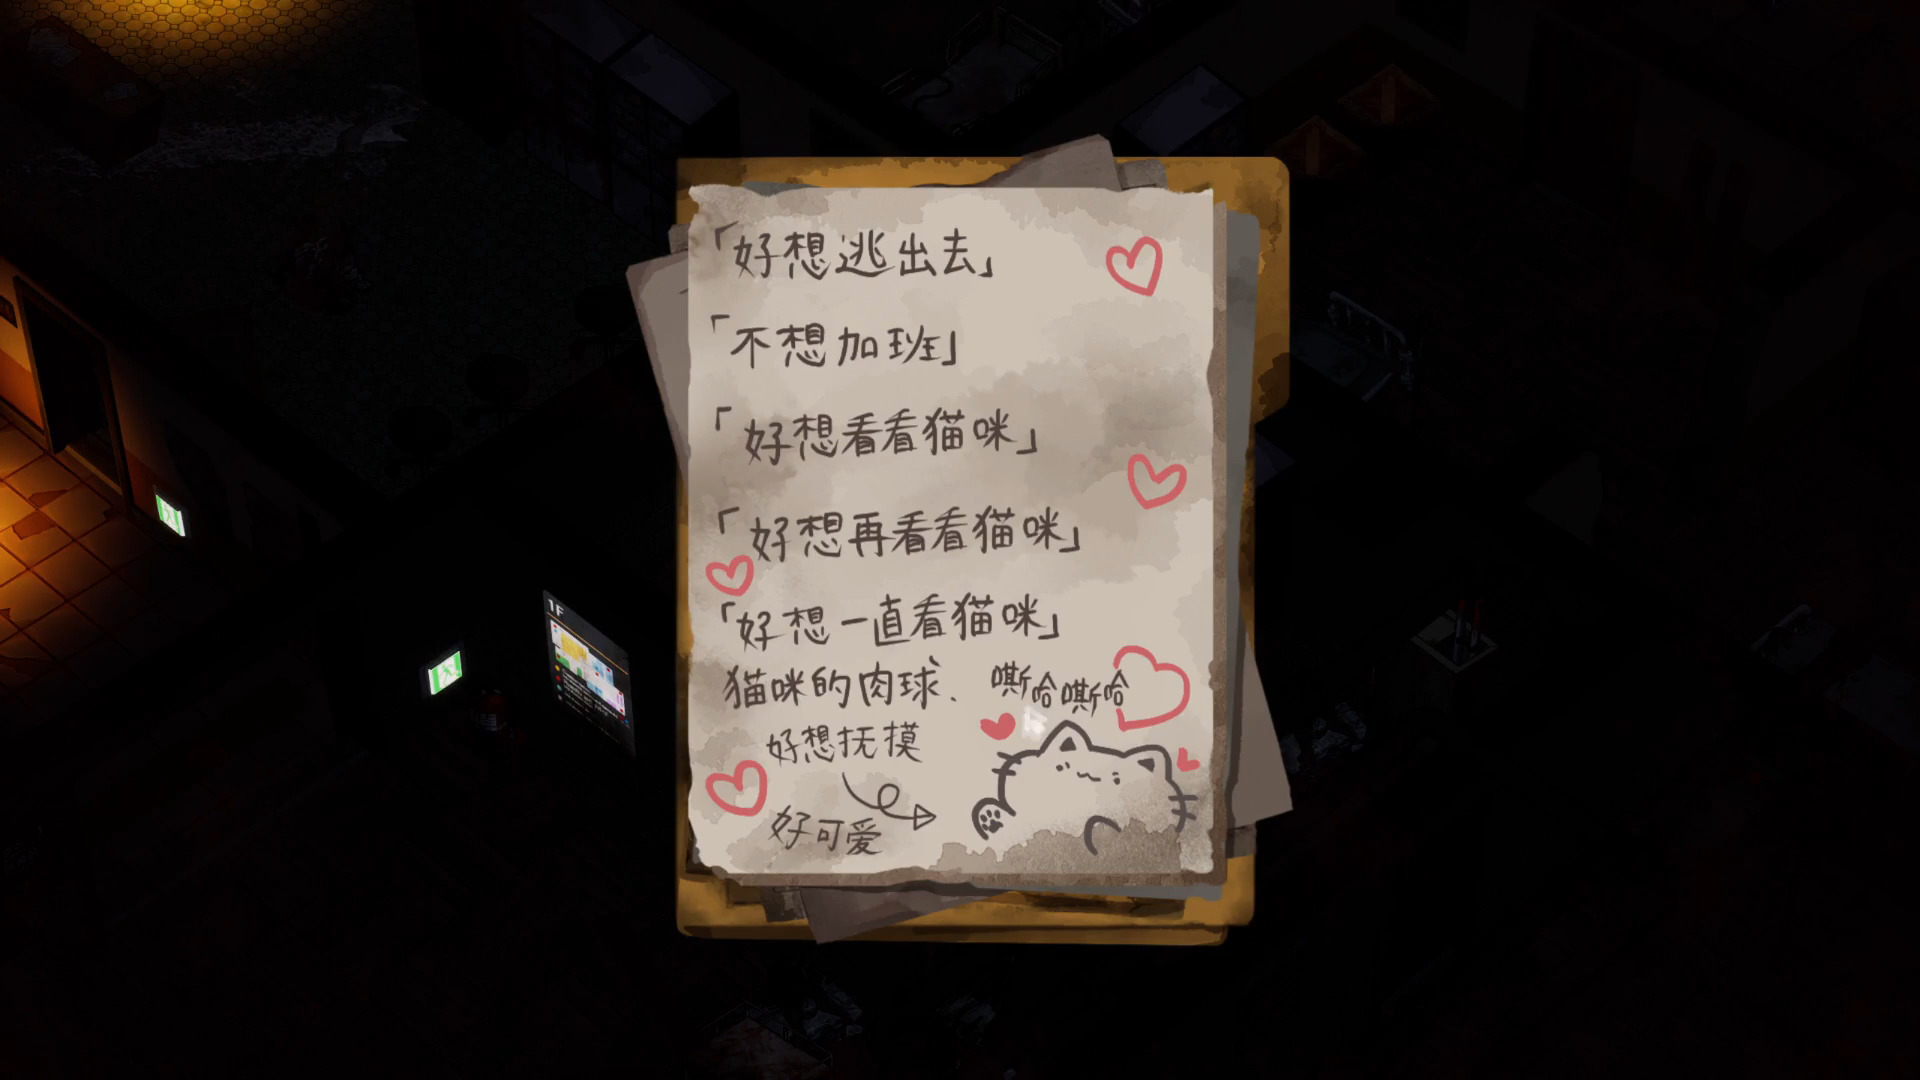 「好想逃出去」
「不想加班」
「好想看看猫咪」
「好想再看看猫咪」
「好想一直看猫咪」
猫咪的肉球、嘶哈嘶哈
好想抚摸
好可爱
1F